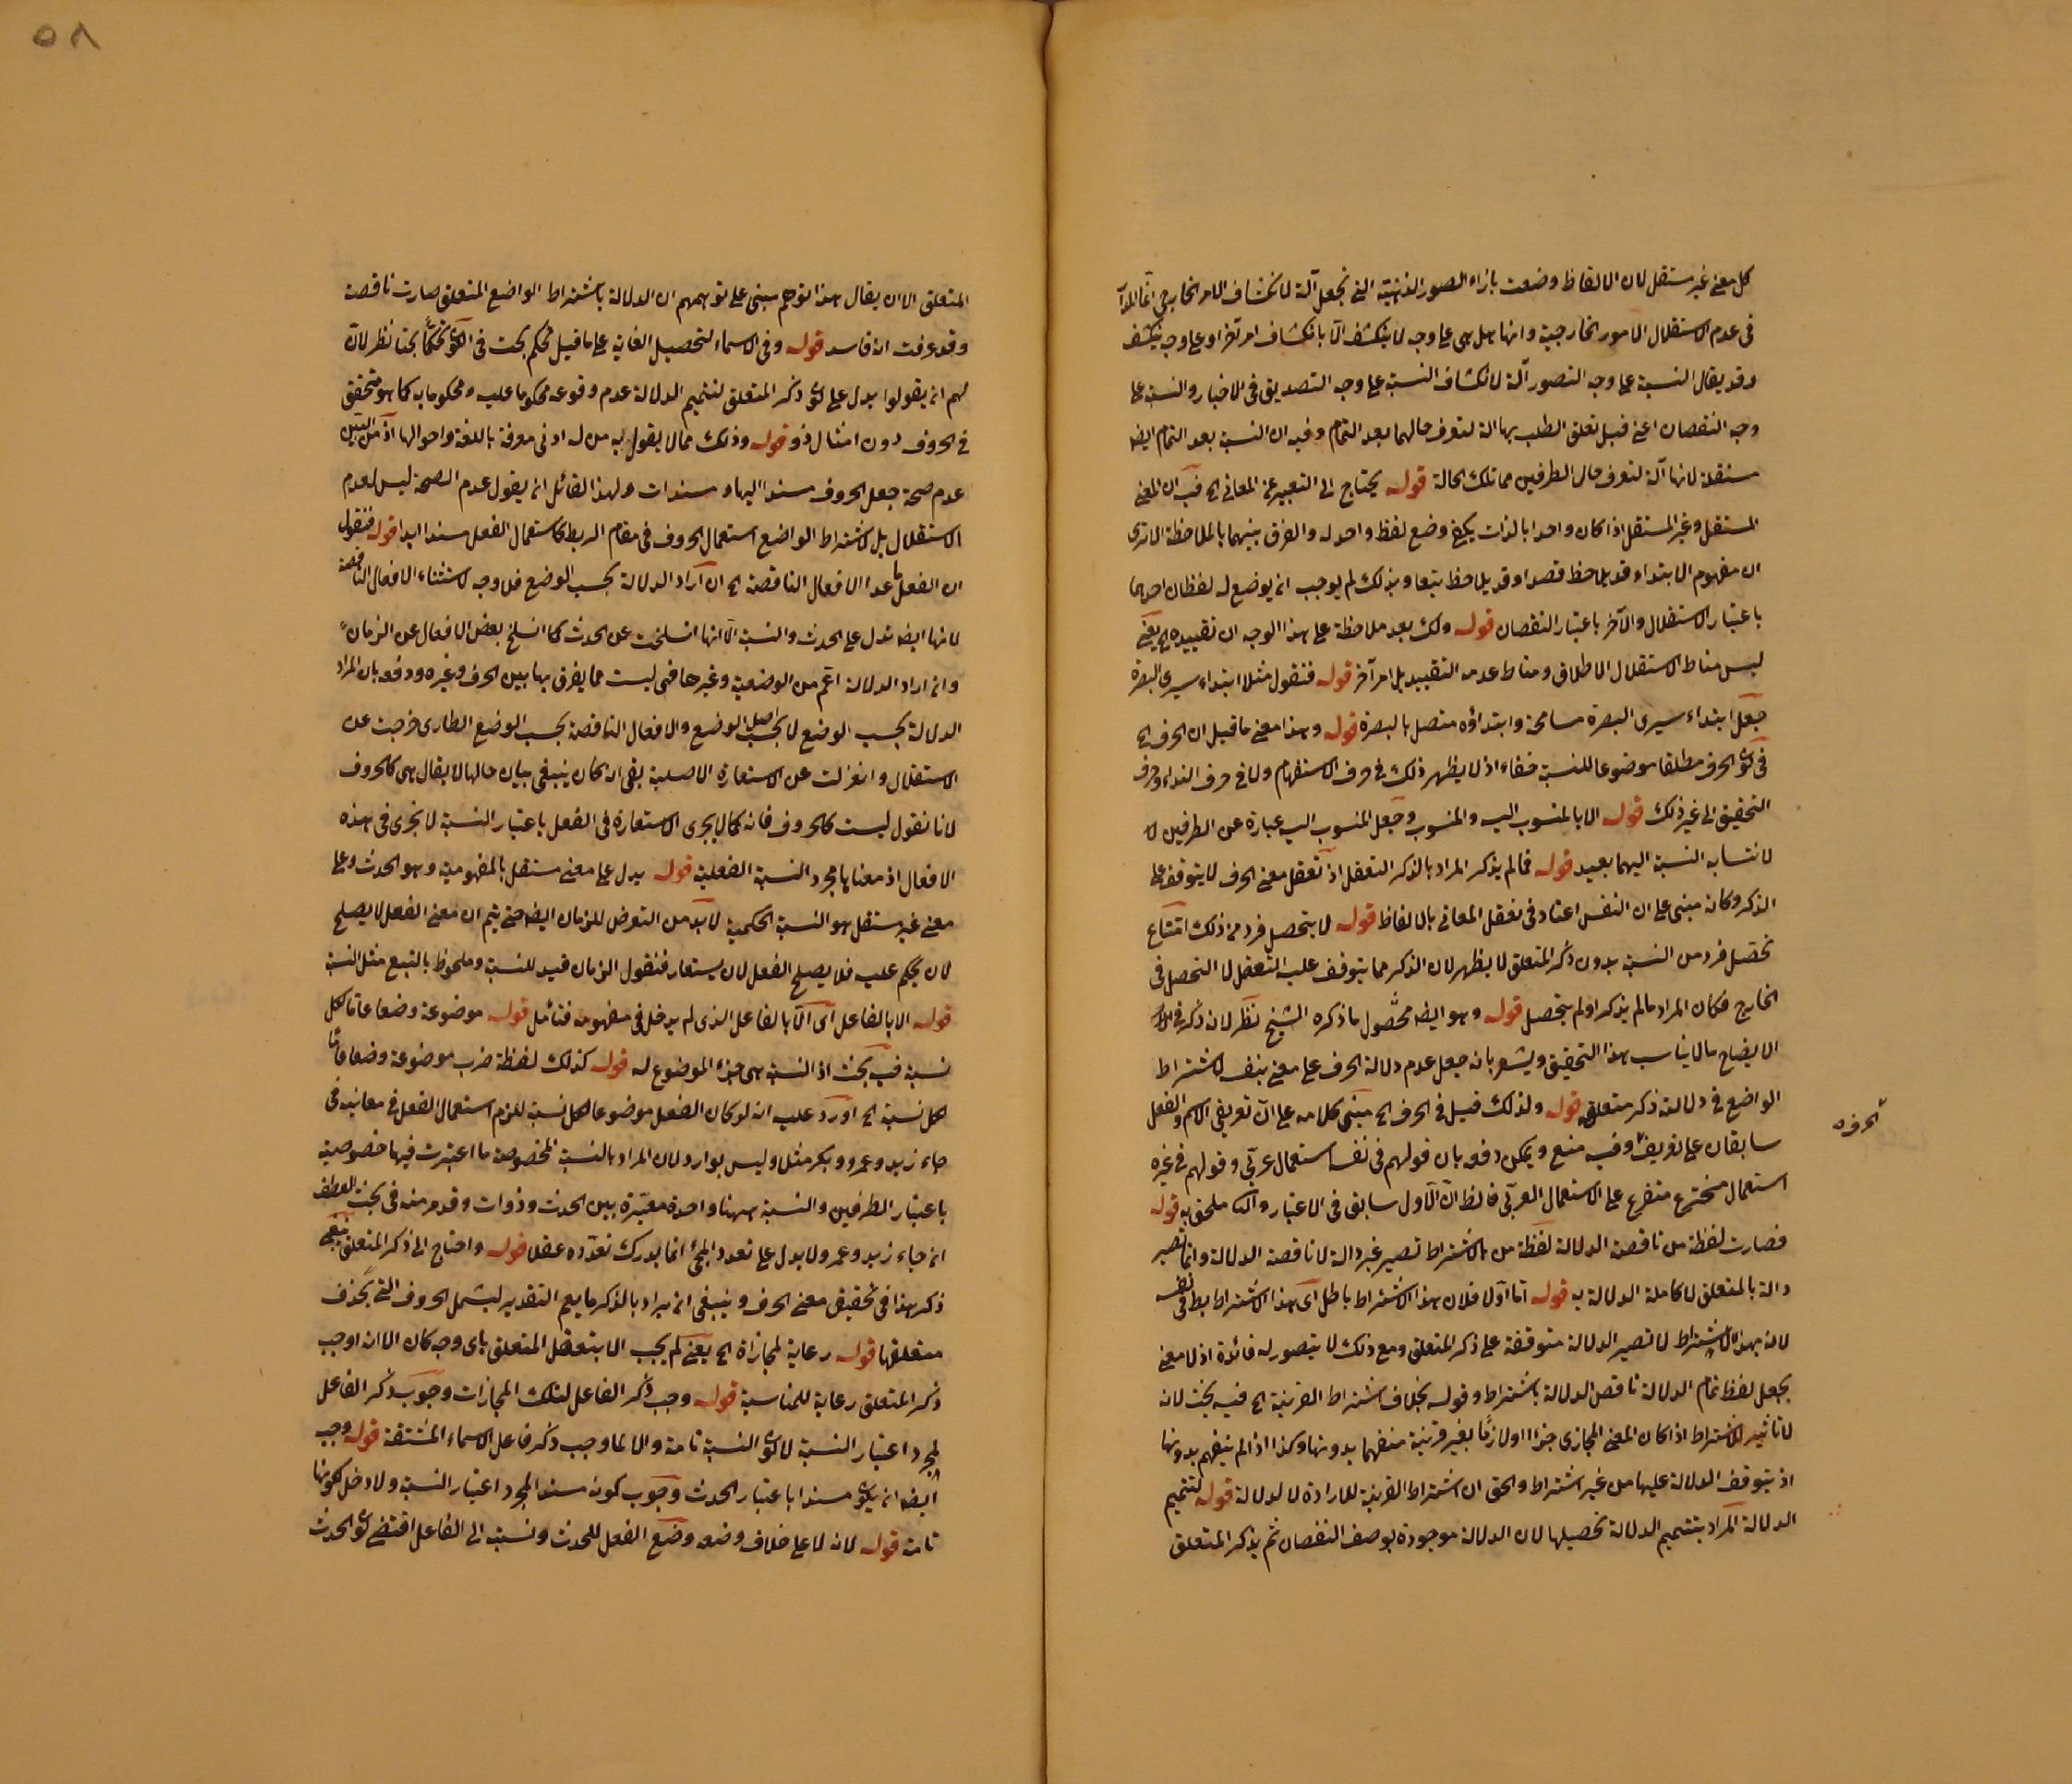 كل معنى غير مستقل لان الالفاظ وضعت بازاء الصور الذهنية التى تجعل آلة لانكشاف الامر الخارجى انما المرآ
فى عدم الاستقلال الامور الخارجية وانها هل هى على وجه لا ينكشف الا بانكشاف امر آخر او على وجه ينكشف
وقد يقال النسبة على وجه التصور آلة لانكشاف النسبة على وجه التصديق فى الاخبار والنسبة على
وجه النقصان اعنى قبل تعلق الطلب بها الة لتعرف حالهما بعد التمام وفيه ان النسبة بعد التمام ايضا
مستقلة لانها آلة لتعرف حال الطرفين مما تلك الحالة قوله يحتاج الى التعبير عن المعانى الخ فيه ان المعنى
المستقل وغير المستقل اذا كان واحدا بالذات يكفى وضع لفظ واحد له والفرق بينهما بالملاحظة الا ترى
ان مفهوم الابتداء قد يلاحظ قصدا وقد يلاحظ بتبعا وبذلك لم يوجب ان يوضع له لفظان احدهما
باعتبار الاستقلال والآخر باعتبار النقصان قوله ولك بعد ملاحظة على هذا الوجه ان تقييده الخ يعنى
ليس مناط الاستقلال الاطلاق ومناط عدمه التقييد بل امر آخر قوله فنقول مثلا ابتداء سيرى البصرة
جعل ابتداء سيرى البصرة مسامحة وابتداؤه متصل بالبصرة قوله وهذا معنى ما قيل ان الحرف الخ
فى كون الحرف مطلقا موضوعا للنسبة خفاء اذ لا يظهر ذلك فى حرف الاستفهام ولا فى حرف النداء وحرف
التحقيق الى غير ذلك قوله الا بالمنسوب اليه والمنسوب وجعل المنسوب اليه عبارة عن الطرفين لا
لانتسابه النسبة اليهما بعيد قوله فما لم يذكر المراد بالذكر التعقل اذ تعقل معنى الحرف لا يتوقف على
الذكر وكانه مبنى على ان النفس اعتاد فى تعقل المعانى بالالفاظ قوله لا يتحصل فرد من ذلك امتناع
تحصل فرد من النسبة بدون ذكر المتعلق لا يظهر لان الذكر مما يتوقف عليه التعقل لا التحصل فى
الخارج فكان المراد ما لم يذكر او لم يتحصل قوله وهو ايضا محصول ما ذكره الشيخ نظر لان ذكر فى
الايضاح ما لا يناسب هذا التحقيق ويشعر بانه جعل عدم دلالة الحرف على معنى بنفسه لاشتراط
الواضع فى دلالته ذكر متعلق قوله ولذلك قيل فى الحرف الخ مبنى كلامه على ان تعريفى الاسم والفعل
الحرف
سابقان على تعريفه وفيه منع ويمكن دفعه بان قولهم فى نفسه استعمال عربى وقولهم فى غيره
استعمال مخترع متفرع على الاستعمال العربى فالظ ان الاول سابق فى الاعتبار والثانى ملحق به قوله
فصارت لفظة من ناقصة الدلالة لفظة من بالاشتراط تصير غير دالة لا ناقصة الدلالة وانما تصير
دالة بالمتعلق لا كاملة الدلالة به قوله اما اولا فلان هذا الاشتراط باطل اى هذا الاشتراط بط فى نفسه
لانه بهذا الاشتراط لا تصير الدلالة متوقفة على ذكر المتعلق ومع ذلك لا يتصور له فائدة اذ لا معنى
بجعل لفظ تمام الدلالة ناقص الدلالة باشتراط وقوله بخلاف اشتراط القرينة الخ فيه بحث لانه
لا تاثير لاشتراط اذا كان المعنى المجازى جزأ او لازما بغير قرينة منفهما بدونها وكذا اذا لم ينفهم بدونها
اذ يتوقف الدلالة عليها من غير اشتراط والحق ان اشتراط القرينة للارادة لا لدلالة قوله لتتميم
الدلالة المراد بتتميم الدلالة تحصيلها لان الدلالة موجودة بوصف النقصان ثم بذكر المتعلق
٥٨
المتعلق الا ان يقال هذا توهم مبنى على توهمهم ان الدلالة باشتراط الواضع المتعلق صارت ناقصة
وقد عرفت انه فاسد قوله وفى الاسماء لتحصيل الغاية على ما قيل تحكم بحت فى كون تحكما بحتا نظر لان
لهم ان يقولوا يدل على كون ذكر المتعلق لتتميم الدلالة عدم وقوعه محكوما عليه ومحكوما به كما هو متحقق
فى الحروف دون امثال ذو قوله وذلك مما لا يقول به من له ادنى معرفة باللغة واحوالها اذ من البين
عدم صحة جعل الحروف مسندا اليها ومسندات ولهذا القائل ان يقول عدم الصحة ليس لعدم
الاستقلال بل لاشتراط الواضع استعمال الحروف فى مقام الربط كاستعمال الفعل مسندا ابدا قوله فنقول
ان الفعل ما عدا الافعال الناقصة الخ ان اراد الدلالة بحسب الوضع فلا وجه لاستثناء الافعال الناقصة
لانها ايضا تدل على الحدث والنسبة الا انها انسلخت عن الحدث كما انسلخ بعض الافعال عن الزمان
وان اراد الدلالة اعم من الوضعية وغيرها فهى ليست مما يفرق بها بين الحرف وغيره ودفعه بان المراد
الدلالة بحسب الوضع لا بحسب اصل الوضع والافعال الناقصة بحسب الوضع الطارى خرجت عن
الاستقلال وانعزلت عن الاستعارة الاصلية بقى انه كان ينبغى بيان حالها لا يقال هى كالحروف
لانا نقول ليست كالحروف فانه كما لا يجرى الاستعارة فى الفعل باعتبار النسبة لا تجرى فى هذه
الافعال اذ معناها مجرد النسبة الفعلية قوله يدل على معنى مستقل بالمفهومية وهو الحدث وعلى
معنى غير مستقل هو النسبة الحكمية لا بد من التعرض للزمان ايضا حتى يتم ان معنى الفعل لا يصلح
لان يحكم عليه فلا يصلح الفعل لان يستعار فنقول الزمان قيد للنسبة وملحوظ بالتبع مثل النسبة
قوله الا بالفاعل اى الا بالفاعل الذى لم يدخل فى مفهومه فتأمل قوله موضوعة وضعا عاما لكل
نسبة فيه بحث اذ النسبة هى جزأ الموضوع له قوله كذلك لفظة ضرب موضوعة وضعا عاما
لكل نسبة الخ اورد عليه انه لو كان الفعل موضوعا لكل نسبة للزم استعمال الفعل فى معانيه فى
جاء زيد وعمرو وبكر مثلا وليس بوارد لان المراد بالنسبة المخصوصة ما اعتبرت فيها خصوصية
باعتبار الطرفين والنسبة ههنا واحدة معتبرة بين الحدث وذوات وقد مر منه فى بحث العطف
ان جاء زيد وعمرو لا يدل على تعدد المجئ انما يدرك تعدده عقلا قوله واحتاج الى ذكر المتعلق ينبغى
ذكر هذا فى تحقيق معنى الحرف وينبغى ان يراد بالذكر ما يعم التقدير ليشمل الحروف التى يحذف
متعلقها قوله رعاية لمحاذاة الخ يعنى لم يجب الا بتعقل المتعلق باى وجه كان الا انه اوجب
ذكر المتعلق رعاية للمناسبة قوله وجب ذكر الفاعل لتلك المحاذاة وجوب ذكر الفاعل
لمجرد اعتبار النسبة لا كون النسبة تامة والا لما وجب ذكر فاعل الاسماء المشتقة قوله وجب
ايضا ان يكون مسندا باعتبار الحدث وجوب كونه مسندا لمجرد اعتبار النسبة ولا دخل لكونها
تامة قوله لانه لا على خلاف وضعه وضع الفعل للحدث ونسبته الى الفاعل اقتضى كون الحدث